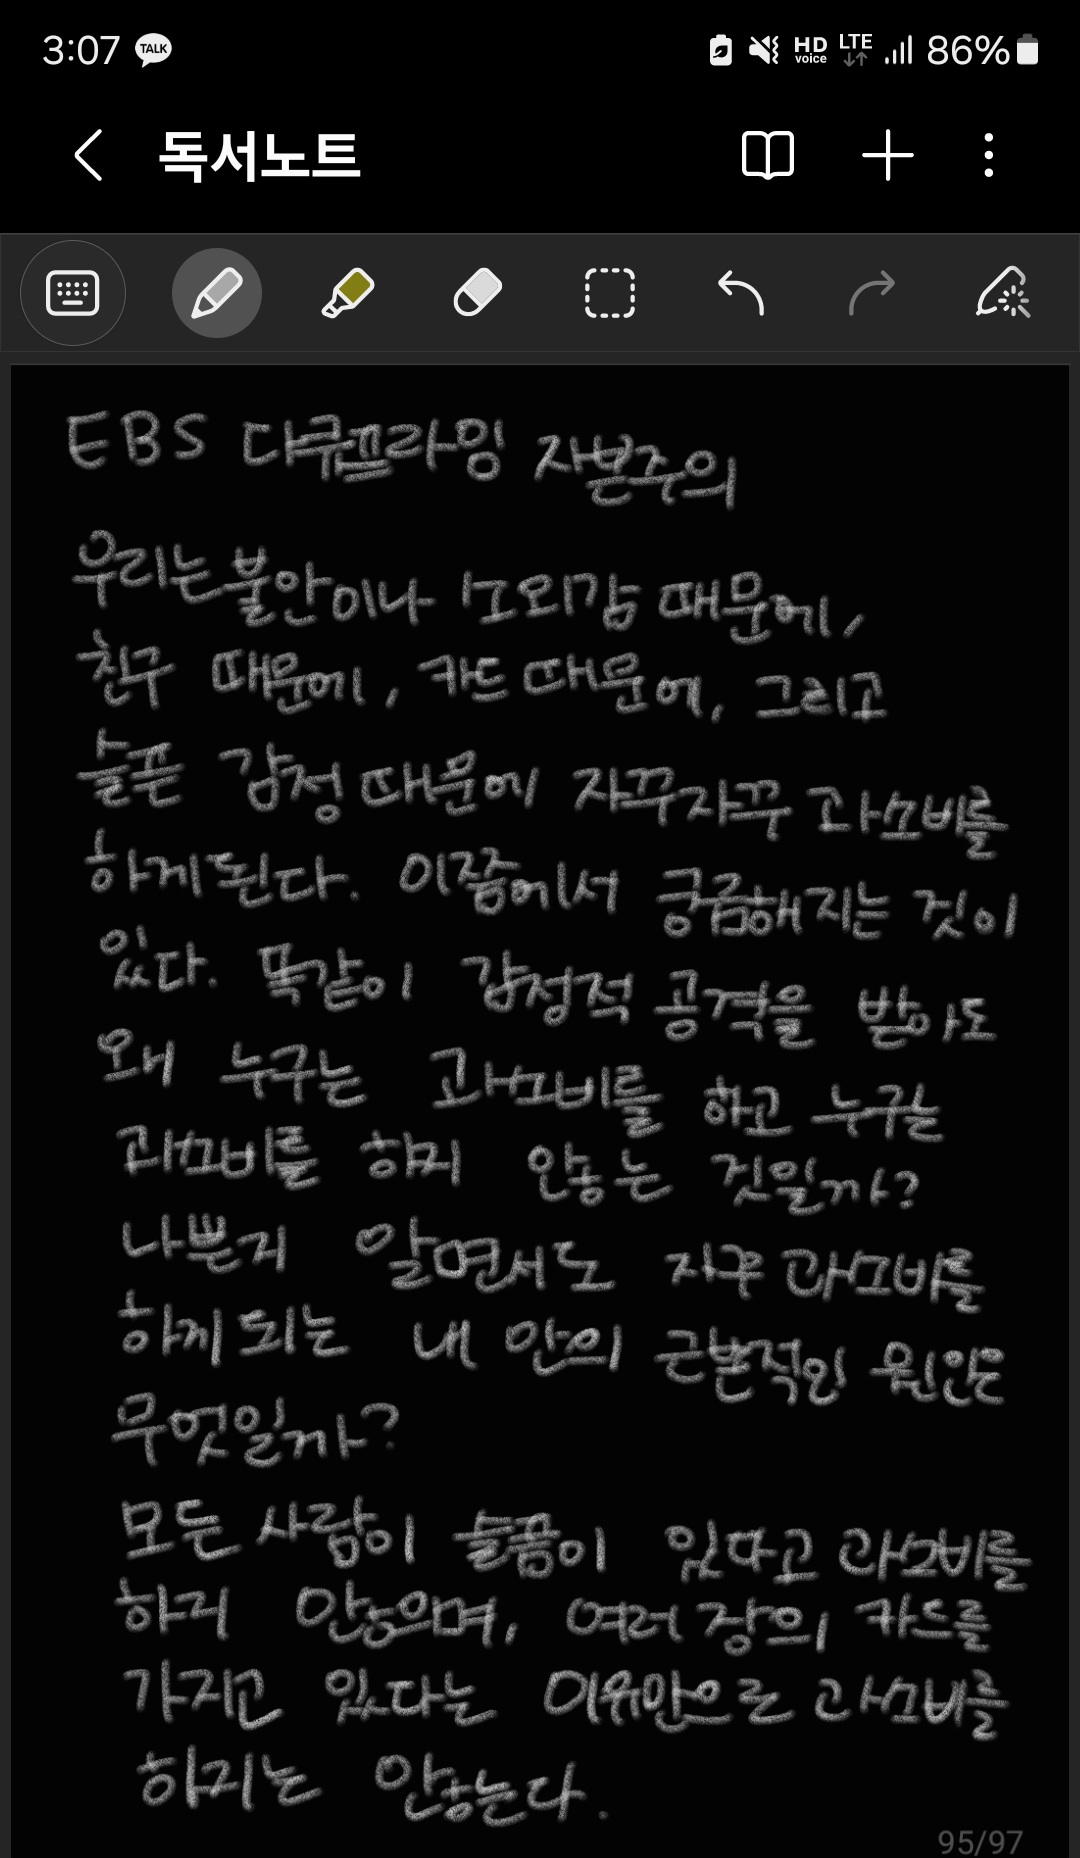 3:07 TALK HD voice LTE 86%
독서노트
EBS 다큐프라임 자본주의
우리는 불안이나 소외감 때문에,
친구 때문에, 카드 때문에, 그리고
슬픈 감정 때문에 자꾸자꾸 과소비를
하게 된다. 이쯤에서 궁금해지는 것이
있다. 똑같이 감정적 공격을 받아도
왜 누구는 과소비를 하고 누구는
과소비를 하지 않는 것일까?
나쁜지 알면서도 자꾸 과소비를
하게 되는 내 안의 근본적인 원인은
무엇일까?
모든 사람이 슬픔이 있다고 과소비를
하지 않으며, 여러 장의 카드를
가지고 있다는 이유만으로 과소비를
하지는 않는다.
95/97